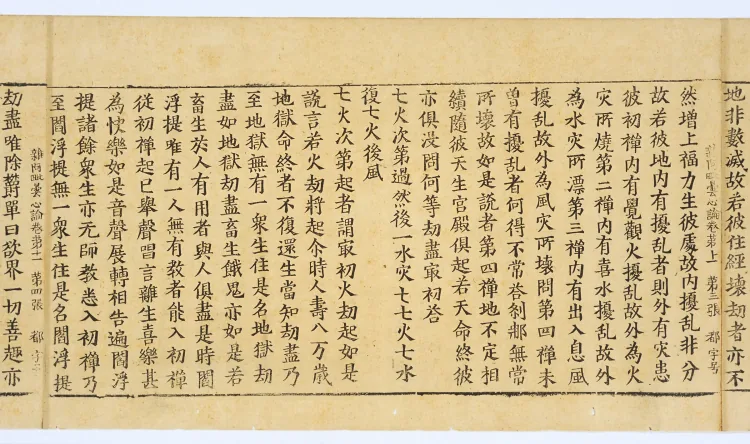 地非數滅故若彼住經壞劫者亦不
雜阿毗曇心論卷第十一 第三張 都字号
然增上福力生彼處故内擾乱非分
故若彼地内有擾乱者則外有灾患
彼初禅内有覺觀火擾乱故外為火
灾所燒第二禅内有喜水擾乱故外
為水灾所漂第三禅内有出入息風
擾乱故外為風灾所壞問第四禅未
曾有擾乱者何得不常荅刹那無常
所壞故如是謊者第四禅地不定相
續隨彼天生宮殿俱起若天命終彼
亦俱没問何等劫盡冣初荅
七火次第過然後一水灾七七火七水
復七火後風
七火次第起者謂冣初火劫起如是
謊言若火劫將起尒時人壽八万歲
地獄命終者不復還生當知劫盡乃
至地獄無有一衆生住是名地獄劫
盡如地獄劫盡畜生餓鬼亦如是若
畜生於人有用者與人俱盡是時閻
浮提唯有一人無有教者能入初禅
從初禅起已舉聲唱言離生喜樂甚
為快樂如是音聲展轉相告遍閻浮
提諸餘衆生亦無師教悉入初禅乃
至閻浮提無一衆生住是名閻浮提
雜阿毗曇心論卷第十一 第四張 都字
劫盡唯除欝單曰欲界一切善趣亦